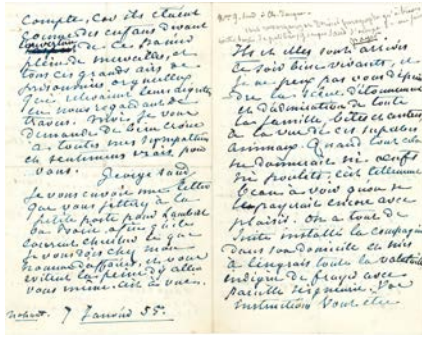 compte, car ils étaient
comme des enfans devant
l'ouverture de ce panier
plein de merveilles, et
tous ces grands airs de
prisonniers orgueilleux
qui relevaient leurs aigrettes
en nous regardant de
travers. Moi je vous
demande de bien croire
à toutes mes sympathies
et sentimens vrais pour
vous.
George Sand
Je vous envoie une lettre
que vous jetterez à la
petite poste pour Lambert
afin qu'il
coure chercher ce que
je vous dois chez mon
homme d'affaires, et vous
évitent la peine d'y aller
vous même.
Nohant. 7 Janvier 55.
Ils et elles sont arrivés
ce soir bien vivants, et
je ne peux pas vous dépein
dre la scène d'étonnement
et d'admiration de toute
la famille, bêtes et autres,
à la vue de ces superbes
animaux. Quand tout cela
ne donnerait ni œufs
ni poulets, c'est tellement
beau à voir qu'on se
le payerait encore avec
plaisir. On a tout de
suite installé la compagnie
dans son domicile et mis
à l'engrais toute la valetaille
indigne de frayer avec
pareille seigneurie. Vos
instructions vont être